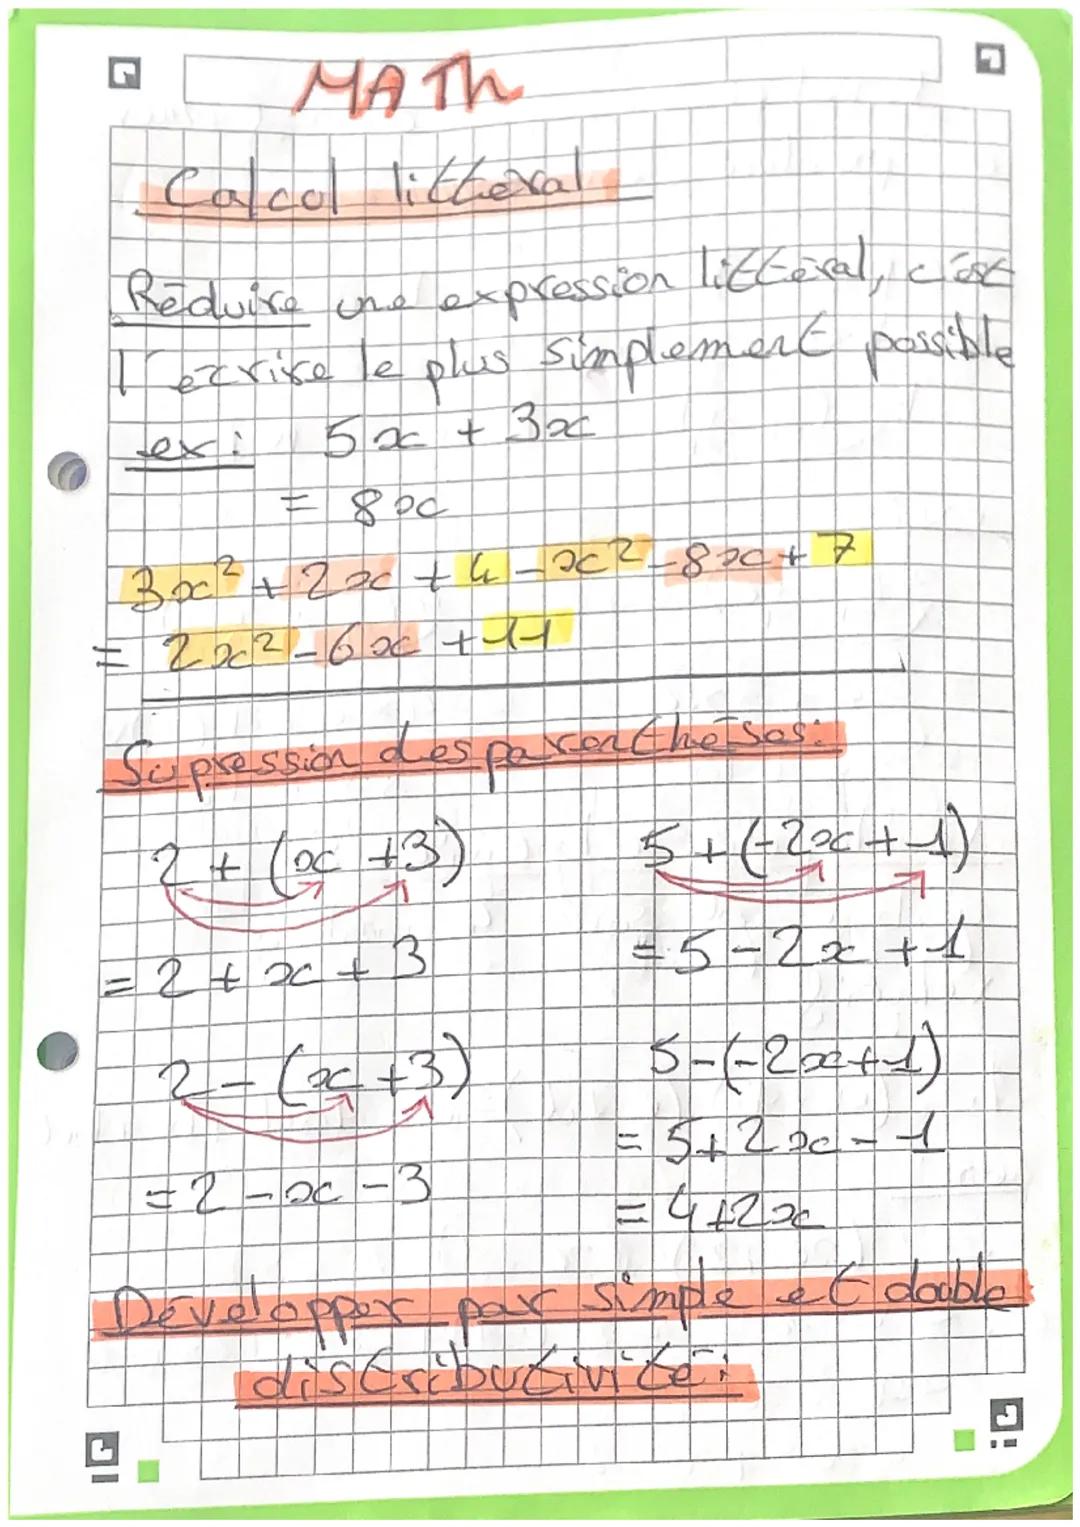 MATH
Calcul littéral
Réduire une expression littéral, c'est
l'écrire le plus simplement possible
ex: 5x + 3x
= 8x
3x² + 2x + 4 - x² - 8x + 7
= 2x² - 6x + 11
Supression des parenthèses:
2 + (x + 3)
= 2 + x + 3
5 + (-2x + 1)
= 5 - 2x + 1
2 - (x + 3)
= 2 - x - 3
5 - (-2x + 1)
= 5 + 2x - 1
= 4 + 2x
Développer par simple et double
distributivité: